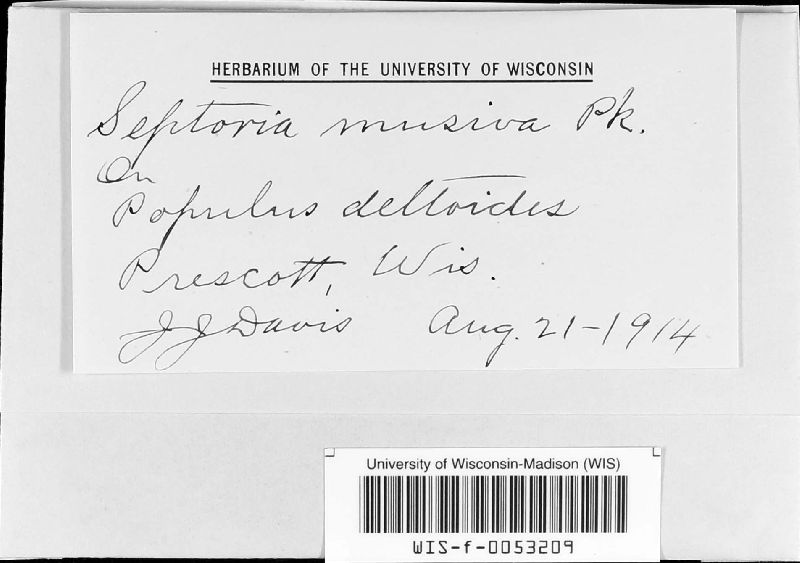 HERBARIUM OF THE UNIVERSITY OF WISCONSIN
Septoria musiva Pk.
On
Populus deltoides
Prescott, Wis.
J J Davis Aug. 21-1914
University of Wisconsin-Madison (WIS)
WIS-f-0053209